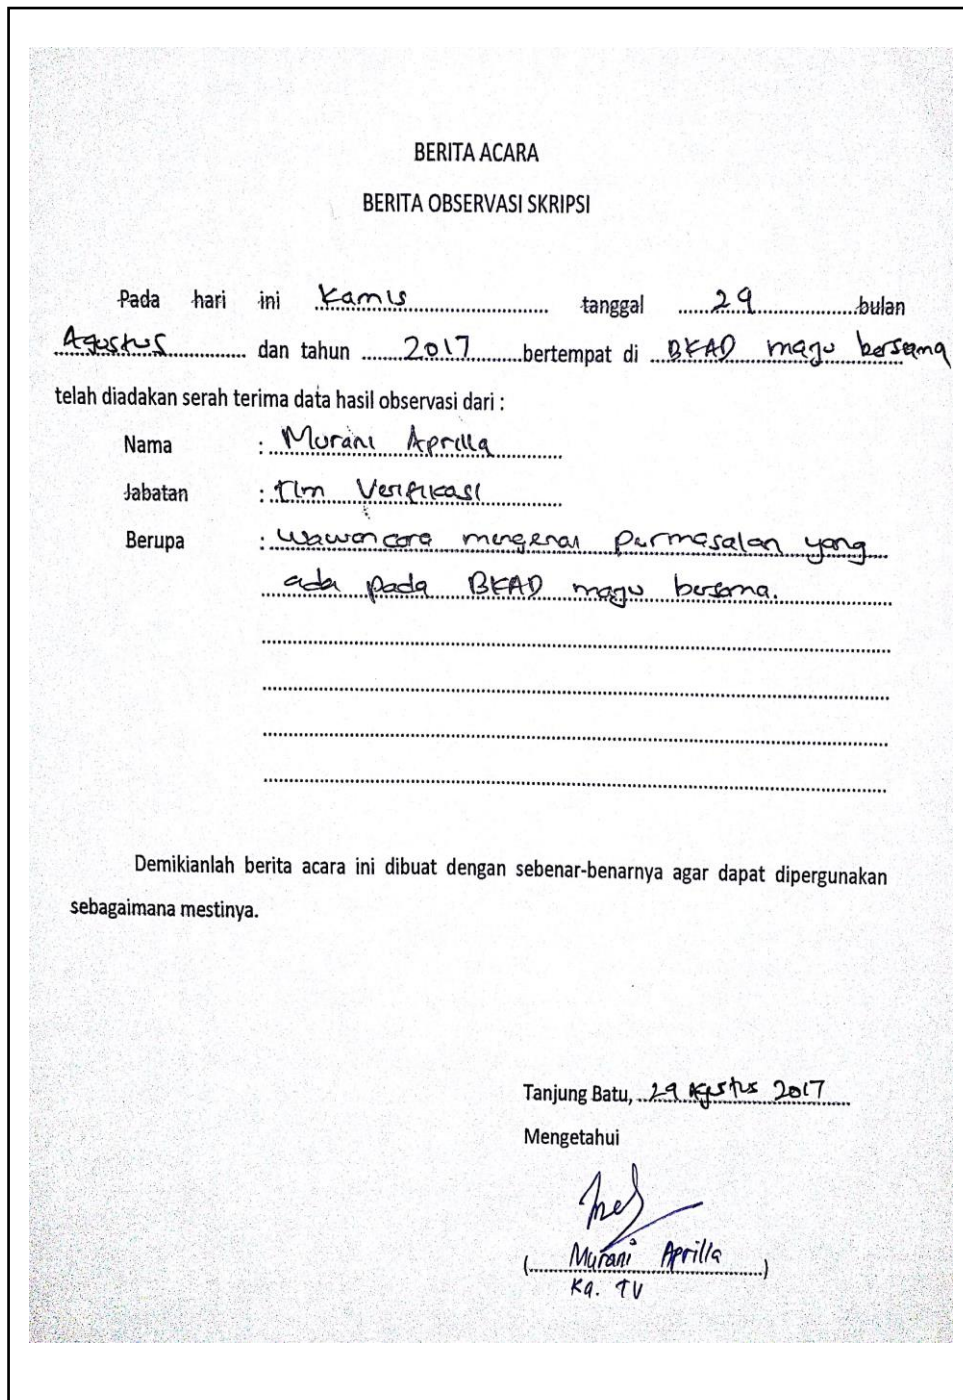 BERITA ACARA
BERITA OBSERVASI SKRIPSI
Pada hari ini Kamis tanggal 29 bulan
Agustus dan tahun 2017 bertempat di BKAD maju bersama
telah diadakan serah terima data hasil observasi dari :
Nama : Murani Aprilla
Jabatan : tim Verifikasi
Berupa : wawancara mengenai permasalan yang
ada pada BKAD maju bersama.
Demikianlah berita acara ini dibuat dengan sebenar-benarnya agar dapat dipergunakan
sebagaimana mestinya.
Tanjung Batu, 29 Agustus 2017
Mengetahui
( Murani Aprilla )
Ka. TV